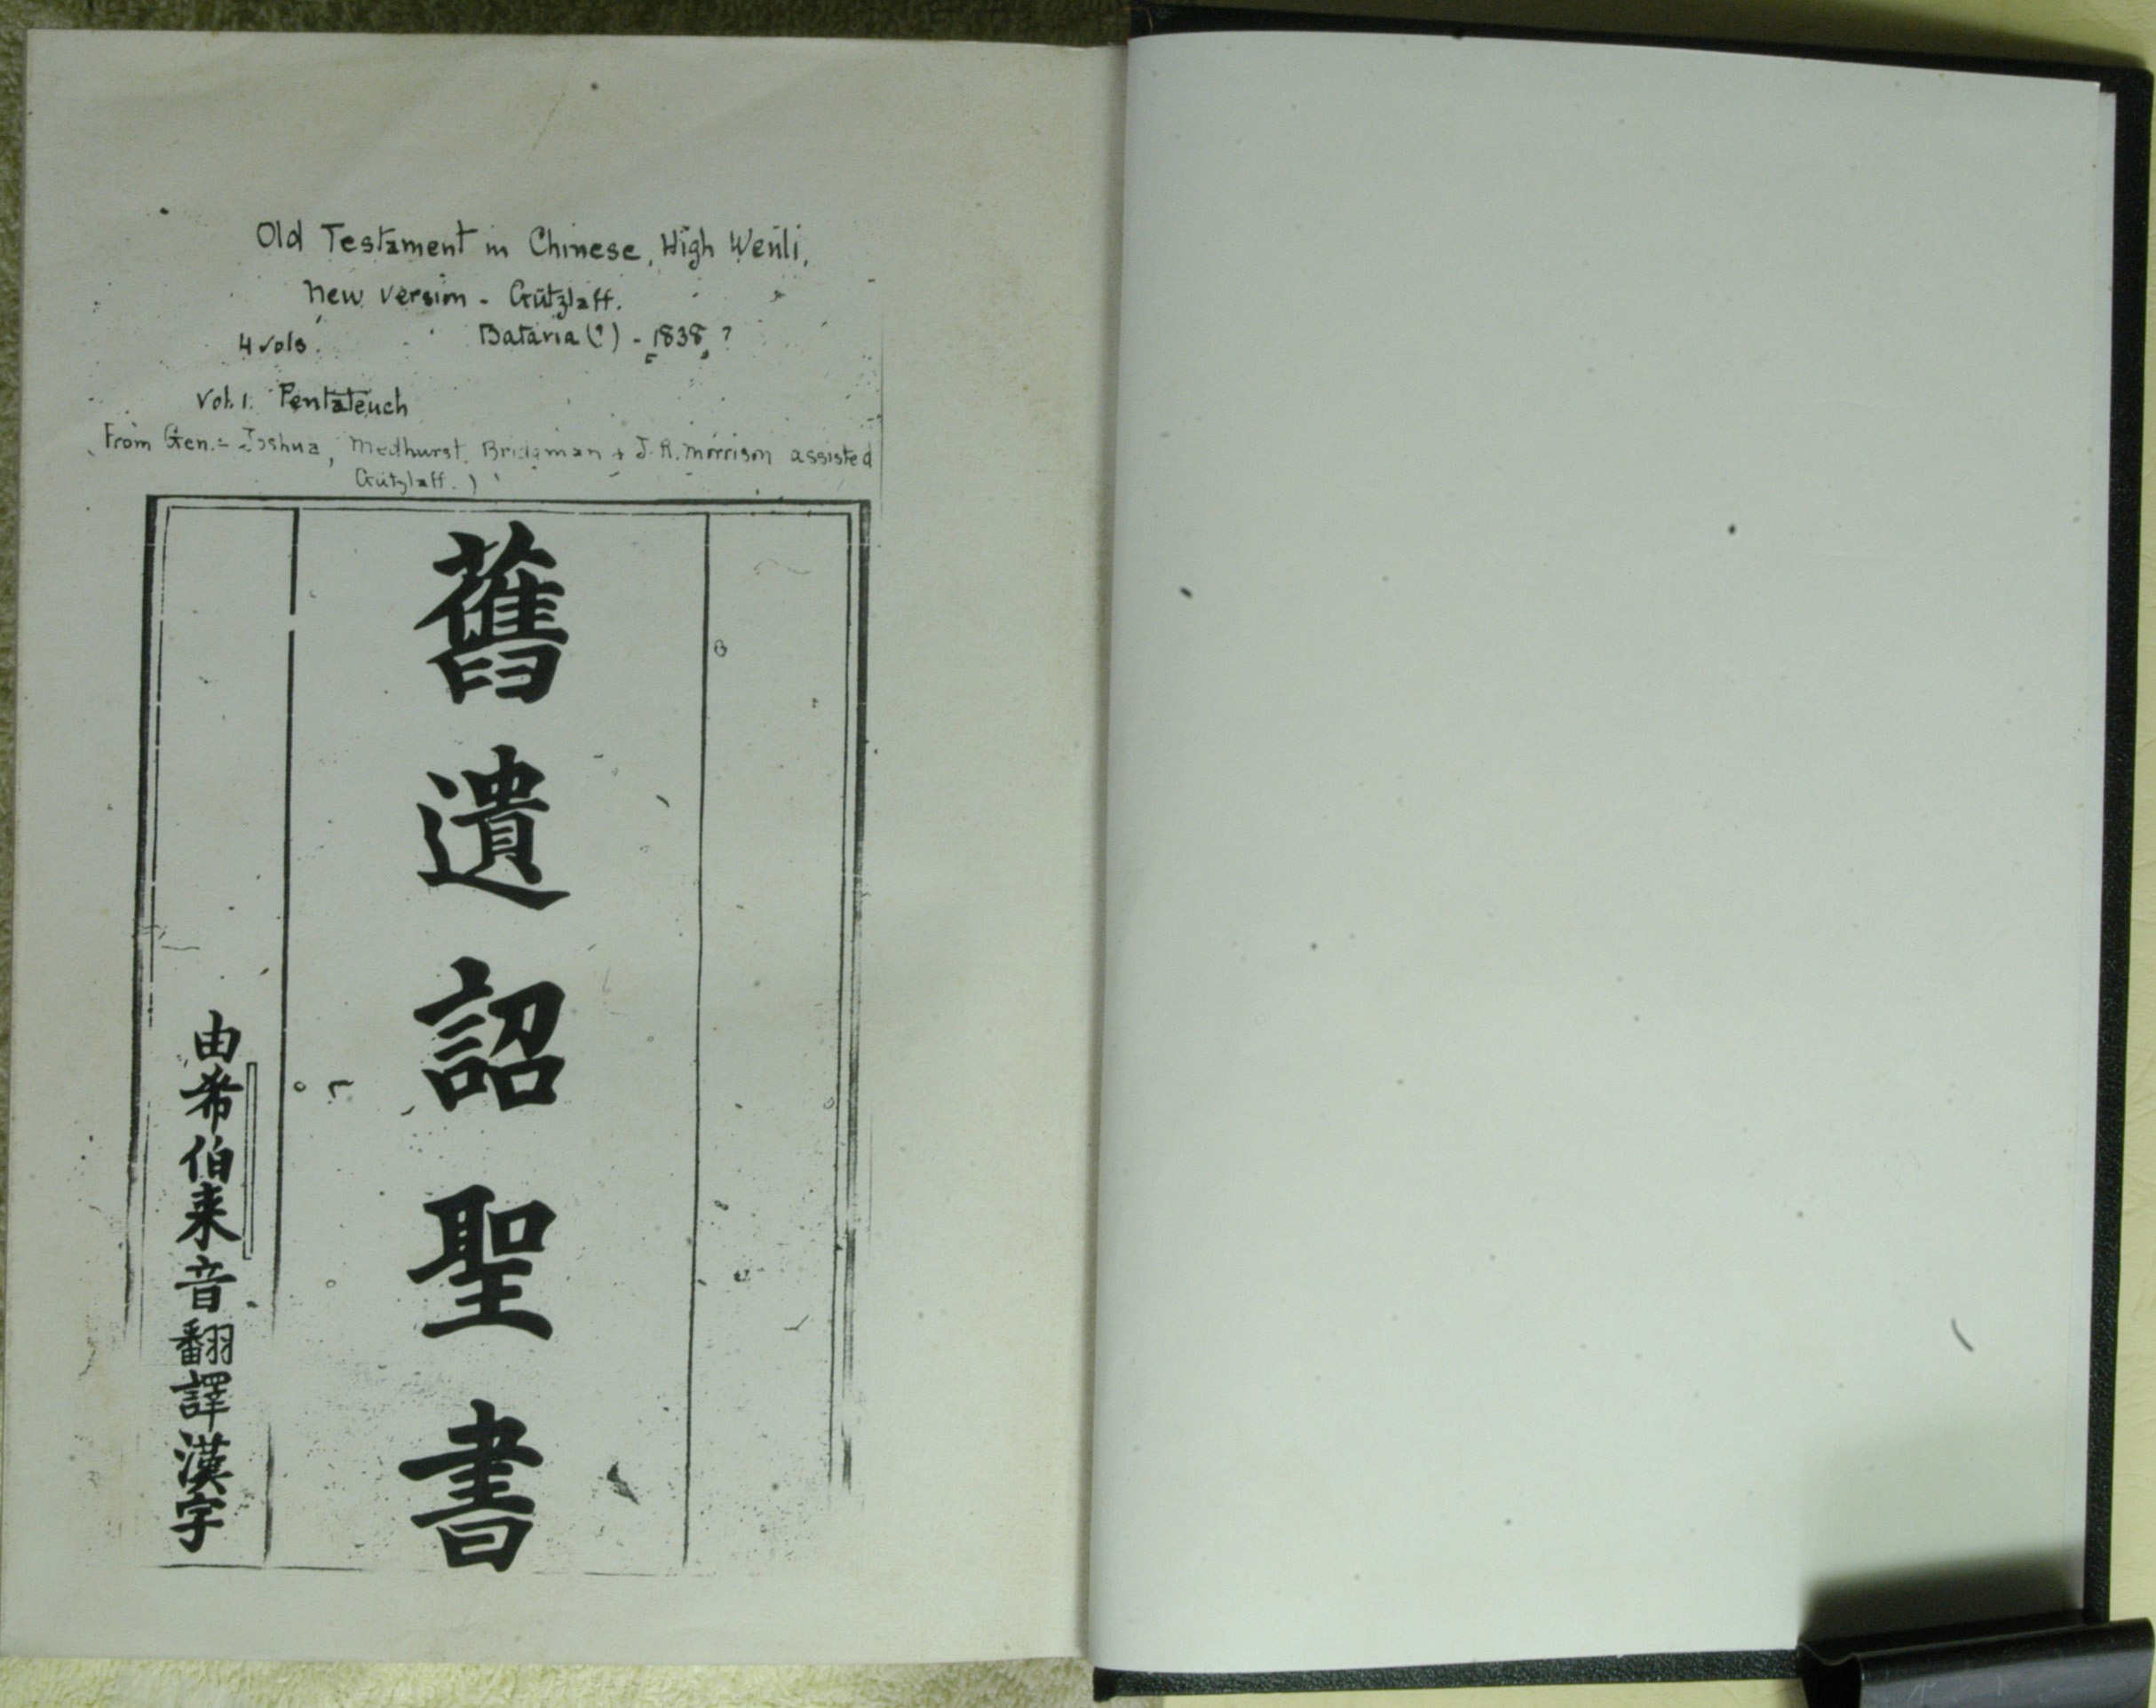 Old Testament in Chinese, High Wenli,
New version - Gützlaff.
4 vols. Batavia (?) - 1838 ?
Vol. 1. Pentateuch
From Gen. - Joshua, Medhurst, Bridgman + J. R. Morrison assisted
Gützlaff.)
舊遺詔聖書
由希伯来音翻譯漢字